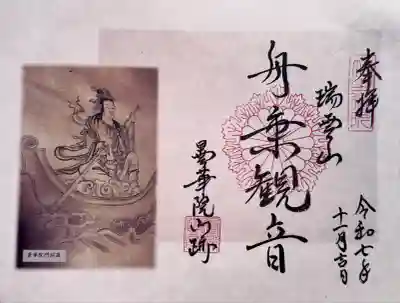 奉拝
瑞雲山
舟乗観音
曇華院門跡
令和七年
十一月吉日